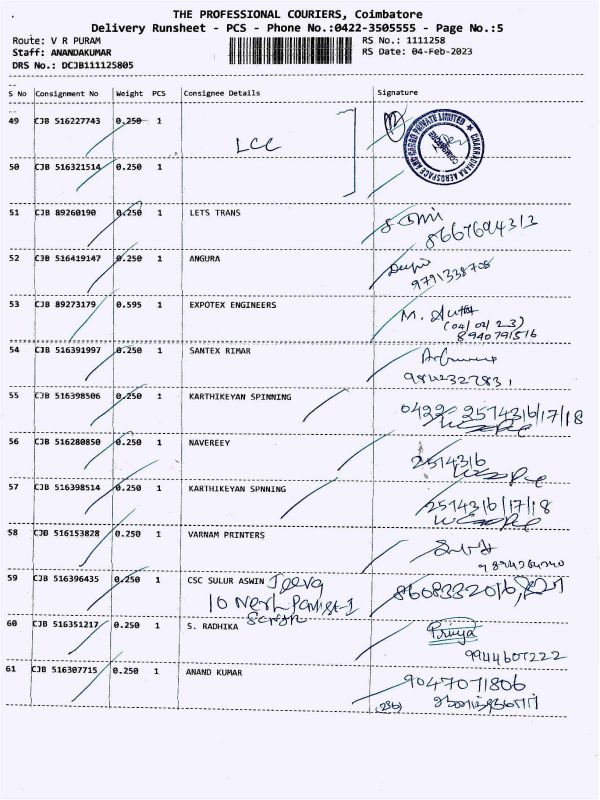 THE PROFESSIONAL COURIERS, Coimbatore
Delivery Runsheet - PCS - Phone No.:0422-3505555 - Page No.:5
Route: V R PURAM RS No.: 1111258
Staff: ANANDAKUMAR RS Date: 04-Feb-2023
DRS No.: DCJB111125805
S No Consignment No Weight PCS Consignee Details Signature
49 CJB 516227743 0.250 1
LCC
CHAKRADHARA AEROSPACE AND CARGO PRIVATE LIMITED
COIMBATORE
50 CJB 516321514 0.250 1
51 CJB 89260190 0.250 1 LETS TRANS
8667694313
52 CJB 516419147 0.250 1 ANGURA
9791338708
53 CJB 89273179 0.595 1 EXPOTEX ENGINEERS
(04/02/23)
8940791516
54 CJB 516391997 0.250 1 SANTEX RIMAR
55 CJB 516398506 0.250 1 KARTHIKEYAN SPINNING
0422 2574316/17/18
56 CJB 516280850 0.250 1 NAVEREEY
2574316
57 CJB 516398514 0.250 1 KARTHIKEYAN SPNNING
2574316/17/18
58 CJB 516153828 0.250 1 VARNAM PRINTERS
59 CJB 516396435 0.250 1 CSC SULUR ASWIN Jeeva
8608332016
60 CJB 516351217 0.250 1 S. RADHIKA
Priya
9944607222
61 CJB 516307715 0.250 1 ANAND KUMAR
9047071806